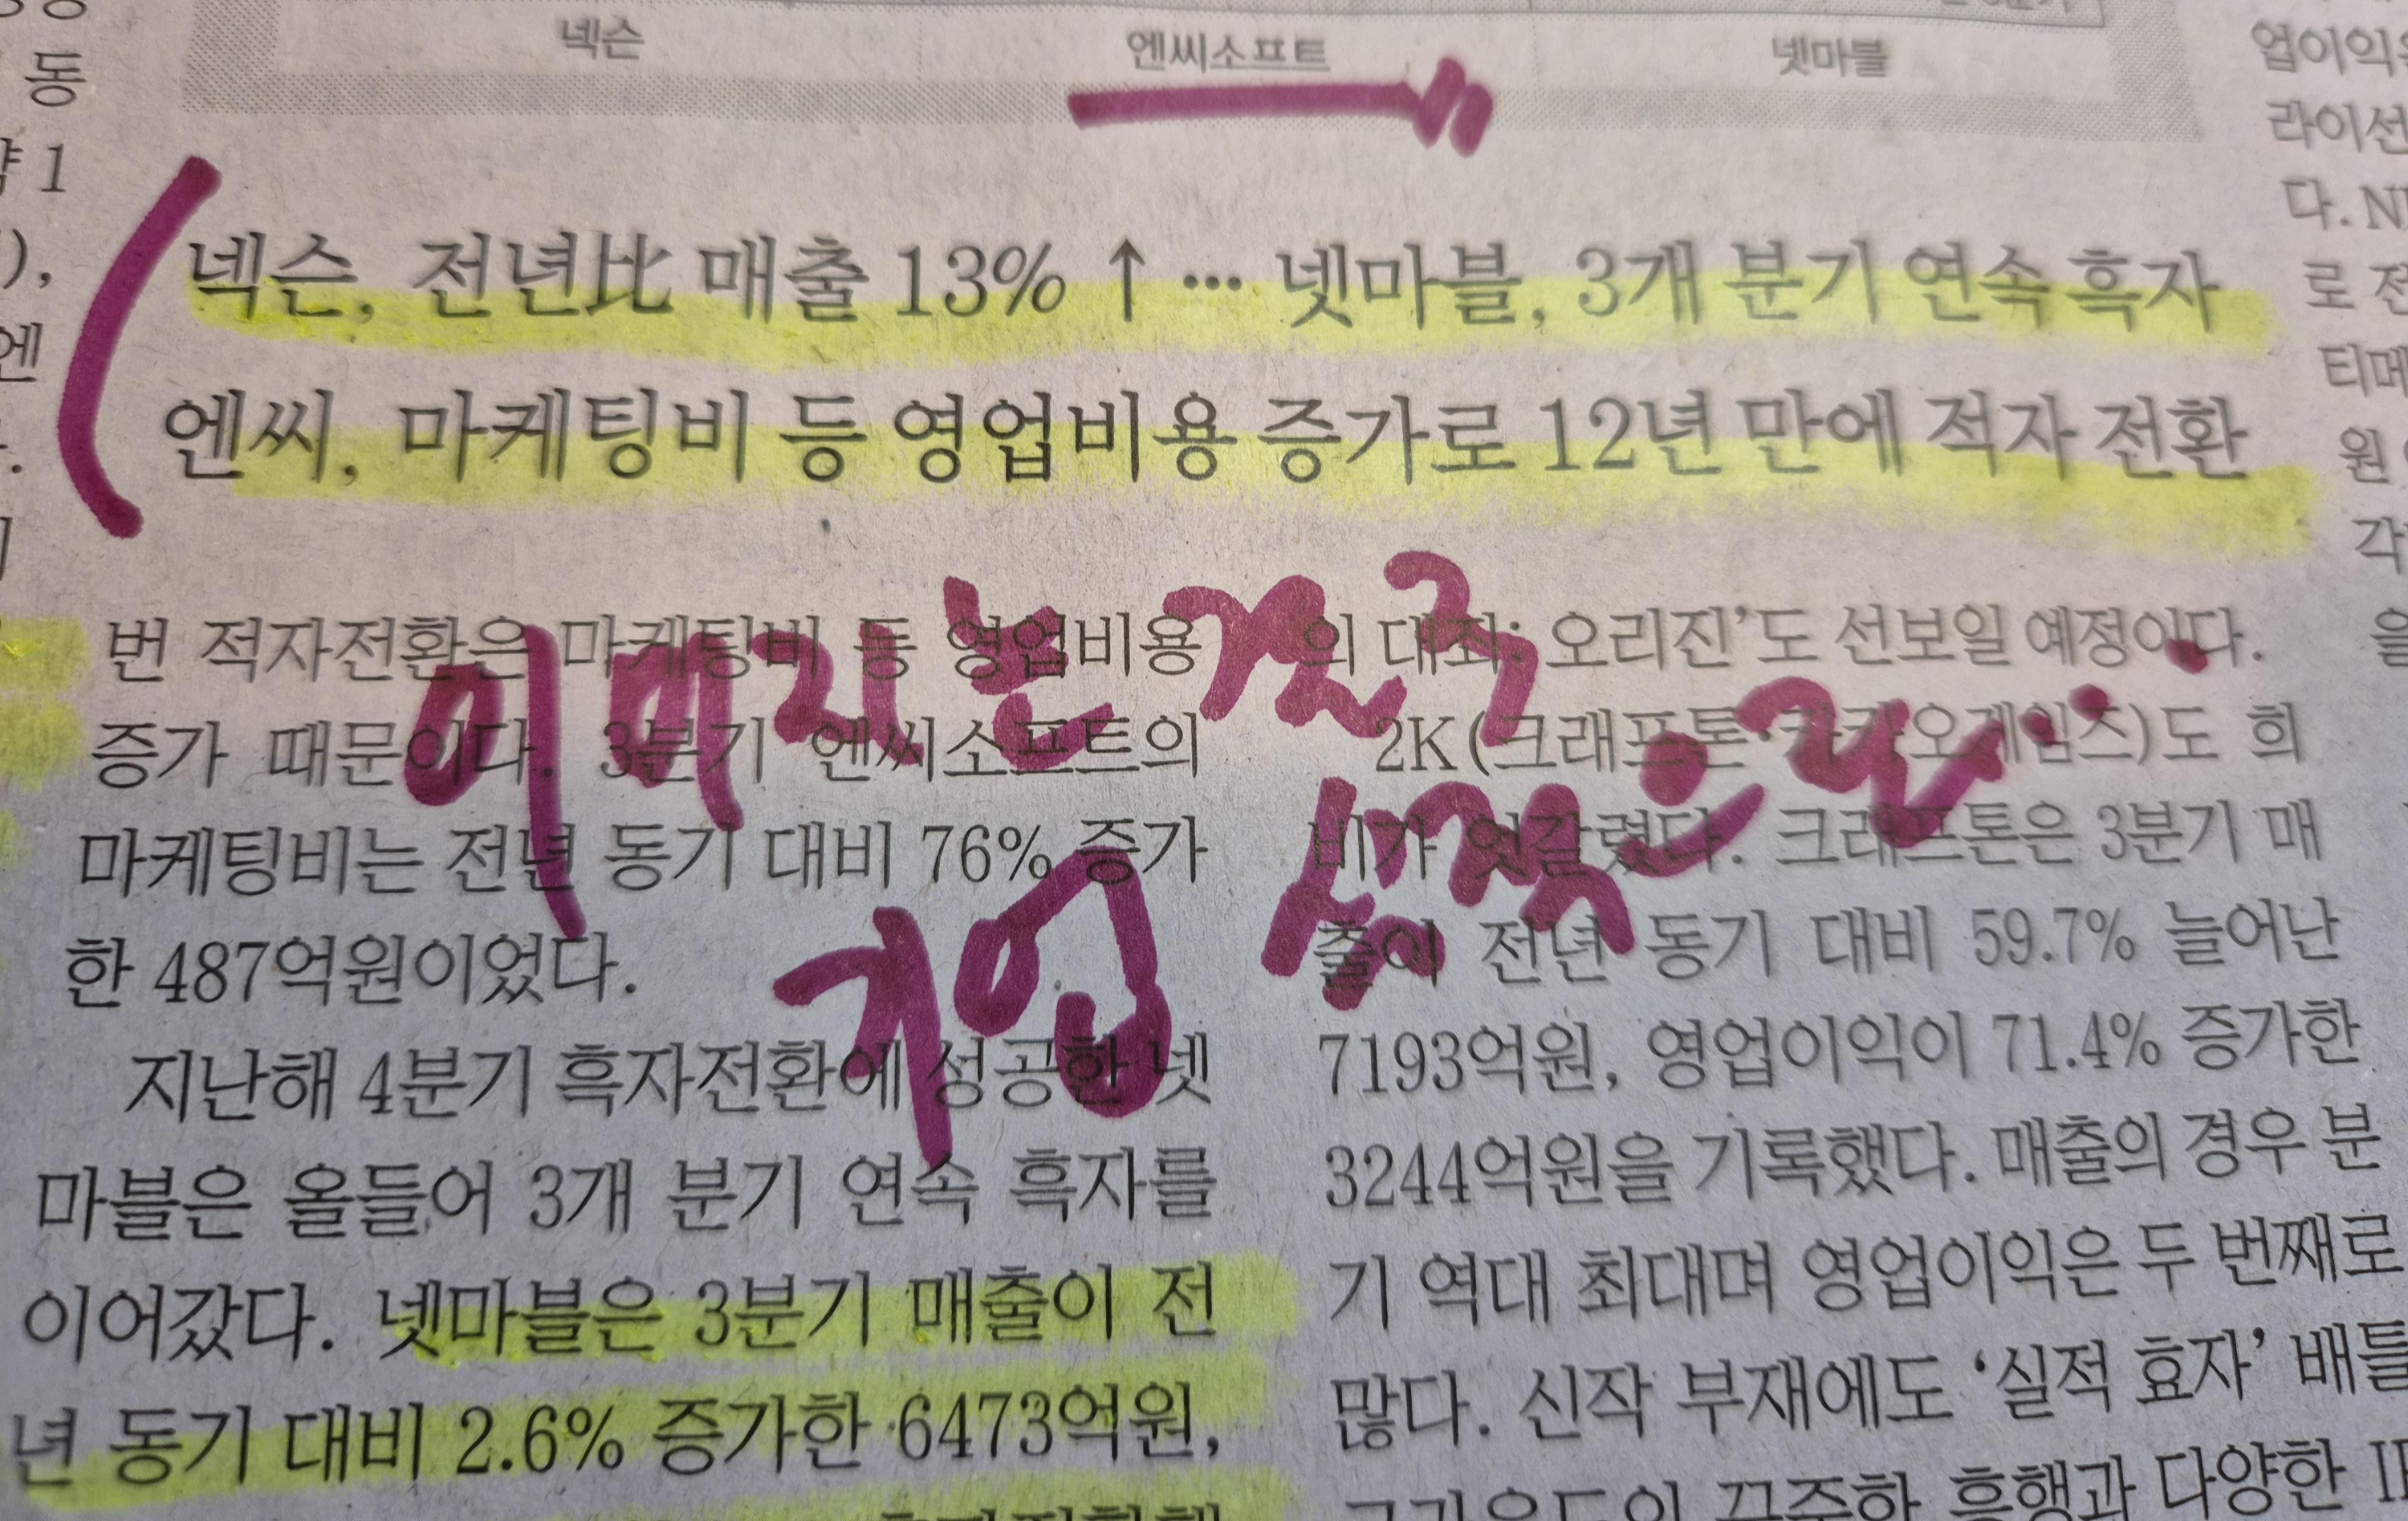 넥슨 엔씨소프트 넷마블
넥슨, 전년比 매출 13% ↑ … 넷마블, 3개 분기 연속 흑자
엔씨, 마케팅비 등 영업비용 증가로 12년 만에 적자 전환
번 적자전환은 마케팅비 등 영업비용
증가 때문이다. 3분기 엔씨소프트의
마케팅비는 전년 동기 대비 76% 증가
한 487억원이었다.
지난해 4분기 흑자전환에 성공한 넷
마블은 올들어 3개 분기 연속 흑자를
이어갔다. 넷마블은 3분기 매출이 전
년 동기 대비 2.6% 증가한 6473억원,
의 대좌: 오리진’도 선보일 예정이다.
2K(크래프톤·카카오게임즈)도 희
비가 엇갈렸다. 크래프톤은 3분기 매
출이 전년 동기 대비 59.7% 늘어난
7193억원, 영업이익이 71.4% 증가한
3244억원을 기록했다. 매출의 경우 분
기 역대 최대며 영업이익은 두 번째로
많다. 신작 부재에도 ‘실적 효자’ 배틀
꾸준한 흥행과 다양한
동
업이익
라이선
다.
로 전
티메
원
각
을
기업
실적은